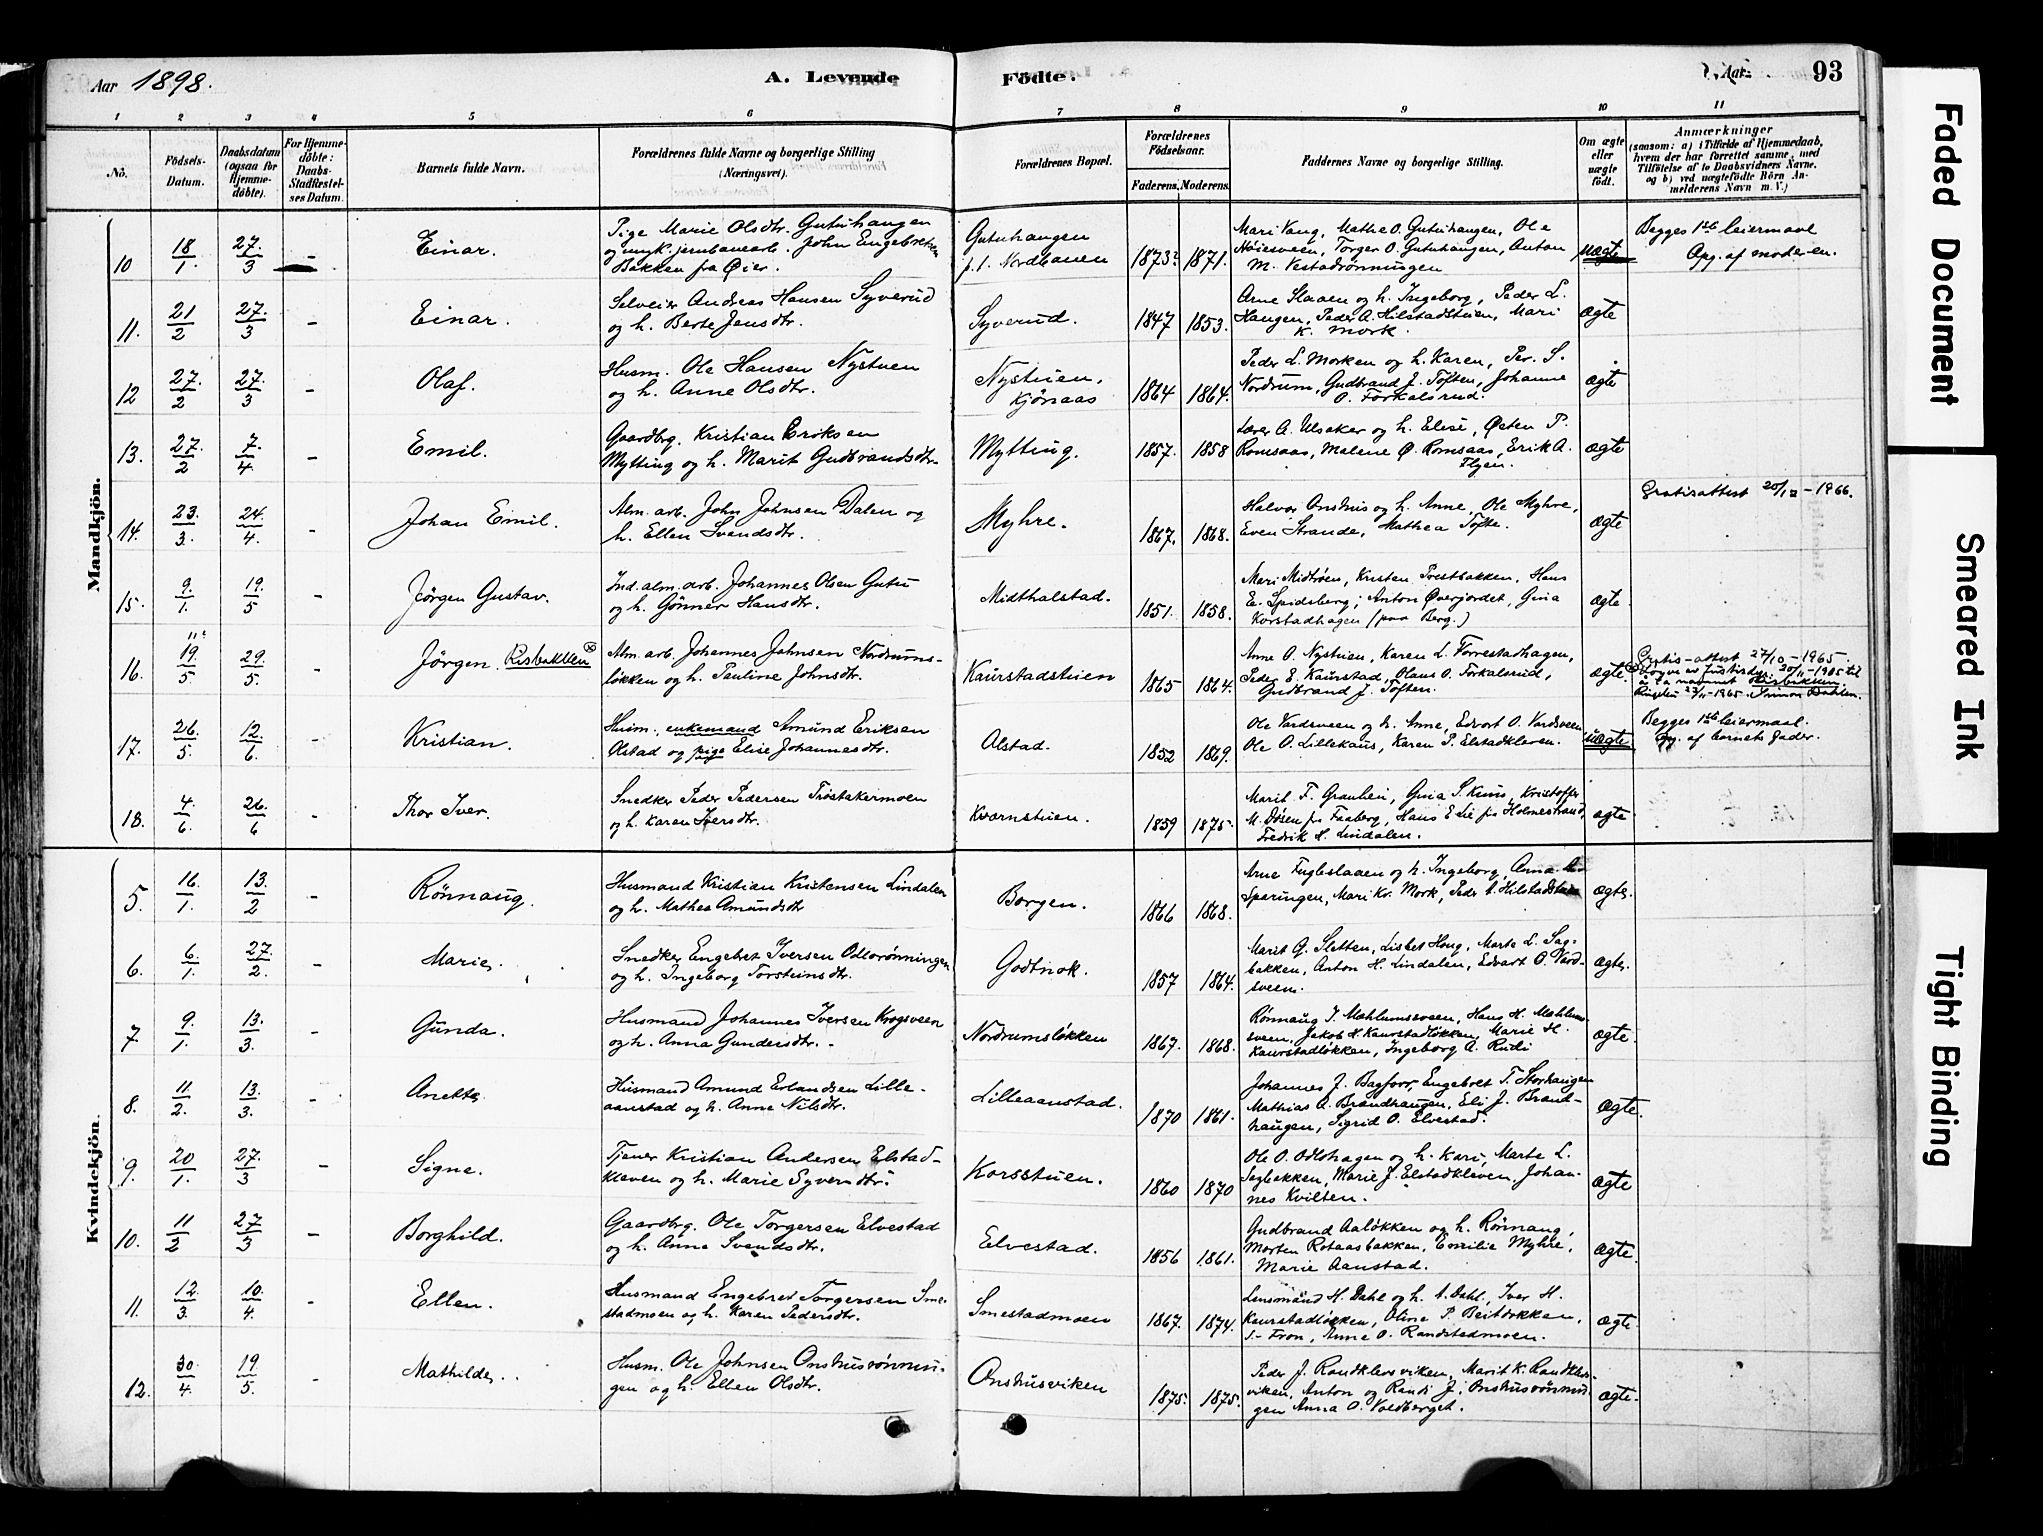 Aar 1898.
A. Levende Födte.
Aar 93
1 2 3 4 5 6 7 8 9 10 11
No.
Födsels-Datum.
Daabsdatum (ogsaa for Hjemme-döbte).
For Hjemme-döbte: Daabs-Stadfæstel-ses Datum.
Barnets fulde Navn.
Forældrenes fulde Navne og borgerlige Stilling (Næringsvei).
Forældrenes Bopæl.
Forældrenes Födselsaar.
Faderens. Moderens.
Faddernes Navne og borgerlige Stilling.
Om ægte eller uægte födt.
Anmærkninger
(saasom: a) i Tilfælde af Hjemmedaab, hvem der har forrettet samme, med Tilföielse af to Daabsvidners Navne, og b) ved uægtefödte Börn Anmelderens Navn m. V.)
Mandkjön.
10 18/1. 27./3 - Einar. Pige Marie Olsdtr. Gutuhaugen
og ungk. jernbanearb. John Engebretsen
Bakken fra Øier.
Gutuhaugen
p.t. Nordbanen 1873? 1871.
Mari Vang, Mathe O. Gutuhaugen, Ole
Høiesveen, Torger O. Gutuhaugen, Anton
M. Vestadrønningen
uægte
Begges 1ste leiermaal
Opg. af moderen.
11. 21/2 27./3 - Einar. Selveier Andreas Hansen Syverud
og h. Berte Jensdtr.
Syverud. 1847 1853.
Arne Slaaen og h. Ingeborg, Peder L.
Haugen, Peder A. Hilstadstuen, Mari
K. Mork.
ægte
12 27./2 27./3 - Olaf. Husm. Ole Hansen Nystuen
og h. Anne Olsdtr.
Nystuen,
Kjönaas 1864 1864.
Peder L. Morken og h. Karen, Per. S.
Nordrum, Gudbrand J. Töften, Johanne
O. Forkalsrud.
ægte
13. 27./2 7./4 - Emil. Gaardbrg. Kristian Eriksen
Mytting og h. Marit Gudbrandsdtr.
Mytting. 1857. 1858
Lærer A. Ulsaker og h. Elise, Østen P.
Romsaas, Malene Ø. Romsaas, Erik A.
Flyen.
ægte
14. 23./3. 24./4. - Johan Emil. Alm. arb. John Johnsen Dalen og
h. Ellen Svendsdtr.
Myhre. 1867. 1868.
Halvor Onshus og h. Anne, Ole Myhre,
Even Strande, Mathea Tofte.
ægte
Gratisattest 20/12 - 1966.
15. 9./1. 19./5 - Jörgen Gustav. Ind. alm. arb. Johannes Olsen Gutu
og h. Gönner Hansdtr.
Midthalstad. 1851. 1858.
Mari Midtöen, Kristen Prestbakken, Hans
E. Spidsberg, Anton Øverjordet, Gina
Korstadhagen (paa Berg.)
ægte
16. 19/5 29./5. - Jörgen. Risbakken Alm. arb. Johannes Johnsen Nordrums-
løkken og h. Pauline Johnsdtr.
Kaurstadstuen 1865 1864.
Anne O. Nystuen, Karen L. Forrestadhagen,
Peder E. Kaurstad, Olaus O. Forkalsrud,
Gudbrand J. Töften.
ægte
Gratis-attest 27/10 - 1965
å ta navnet Risbakken.
17. 26./5. 12./6. - Kristian. Husm. enkemand Amund Eriksen
Olstad og pige Elise Johannesdtr.
Olstad. 1852 1869.
Ole Vardsveen og h. Anne, Edvart O. Vardsveen
Ole O. Lillekaus, Karen P. Elstadkleven.
uægte
Begges 1ste leiermaal.
Opg. af barnets fader.
18. 4./6. 26./6 - Thor Iver. Snedker Peder Pedersen Trøstakermoen
og h. Karen Iversdtr.
Kvarnstuen. 1859 1875.
Marit F. Grauhei, Gina S. Kuus, Kristoffer
M. Døsen fra Faaberg, Hans E Lie fra Holmestrand,
Fredrik H. Lindalen.
ægte
Kvindekjön.
5. 16./1. 13./2 - Rönnaug. Husmand Kristian Kristensen Lindalen
og h. Mathea Amundsdtr
Borgen. 1866 1868.
Arne Fugleslaaen og h. Ingeborg, Anna
Sparingen, Mari Kr. Mork, Peder A. Hilstadstuen
ægte.
6. 6./1. 27./2. - Marie. Snedker Engebret Iversen Odlorønningen
og h. Ingeborg Torsteinsdtr.
Godtnok. 1857 1864.
Marit G. Sletten, Lisbet Haug, Marte L. Sag-
bakken, Anton H. Lindalen, Edvart O. Vard-
sveen.
ægte.
7 9./1. 13./3. - Gunda. Husmand Johannes Iversen Krogsveen
og h. Anna Gundersdtr.
Nordrumsløkken 1867. 1868.
Rønnaug I. Mæhlumsveen, Hans H. Mæhlum-
sveen, Jakob H. Kaurstadløkken, Marie H.
Kaurstadløkken, Ingeborg A. Rudi
ægte.
8. 11/2. 13./3. - Anette. Husmand Amund Erlandsen Lille-
aanstad og h. Anne Nilsdtr.
Lilleaanstad. 1870 1861.
Johannes J. Bagforr, Engebret T. Storhaugen
Mathias A. Brandhaugen, Eli J. Brand-
haugen, Sigrid O. Elvestad.
ægte.
9. 20/1. 27./3 - Signe. Tjener Kristian Andersen Elstad-
kleven og h. Marie Syversdtr.
Korsstuen. 1860 1870
Ole O. Odlohagen og h. Kari, Marte L.
Sagbakken, Marie J. Elstadkleven, Johan-
nes Kvilten.
ægte
10. 11/2 27/3 - Borghild. Gaardbrg. Ole Torgersen Elvestad
og h. Anne Svendsdtr.
Elvestad. 1856 1861.
Gudbrand Aaløkken og h. Rönnaug,
Morten Rotaasbakken, Emilie Myhre,
Marie Aanstad.
ægte
11. 12./3. 10./4 - Ellen. Husmand Engebret Torgersen Sme-
stadmoen og h. Karen Pedersdtr.
Smestadmoen 1867. 1874.
Lensmand H. Dahl og h. A. Dahl, Iver H.
Kaurstadløkken, Oline P. Beitdokken,
S.- Fron, Anne O. Randstadmoen.
ægte
12. 30./4. 19/5. - Mathilde. Husm. Ole Johnsen Onshusrønnin-
gen og h. Ellen Olsdtr.
Onshusviken 1875. 1875.
Peder J. Randklevviken, Marit K. Randklev-
viken, Anton og Randi J. Onshusrønnin-
gen Anna O. Voldberget.
ægte.
Faded Document
Smeared Ink
Tight Binding